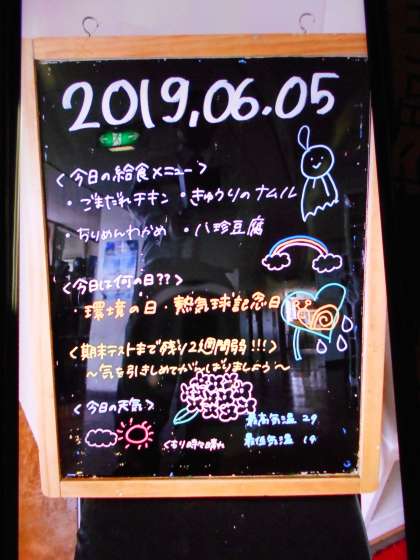 2019.06.05
<今日の給食メニュー>
・ごまだれチキン ・きゅうりのナムル
・ちりめんわかめ ・八珍豆腐
<今日は何の日??>
・環境の日・熱気球記念日
<期末テストまで残り2週間弱!!!>
～気を引きしめてがんばりましょう～
<今日の天気>
最高気温 29
くもり時々晴れ 最低気温 19